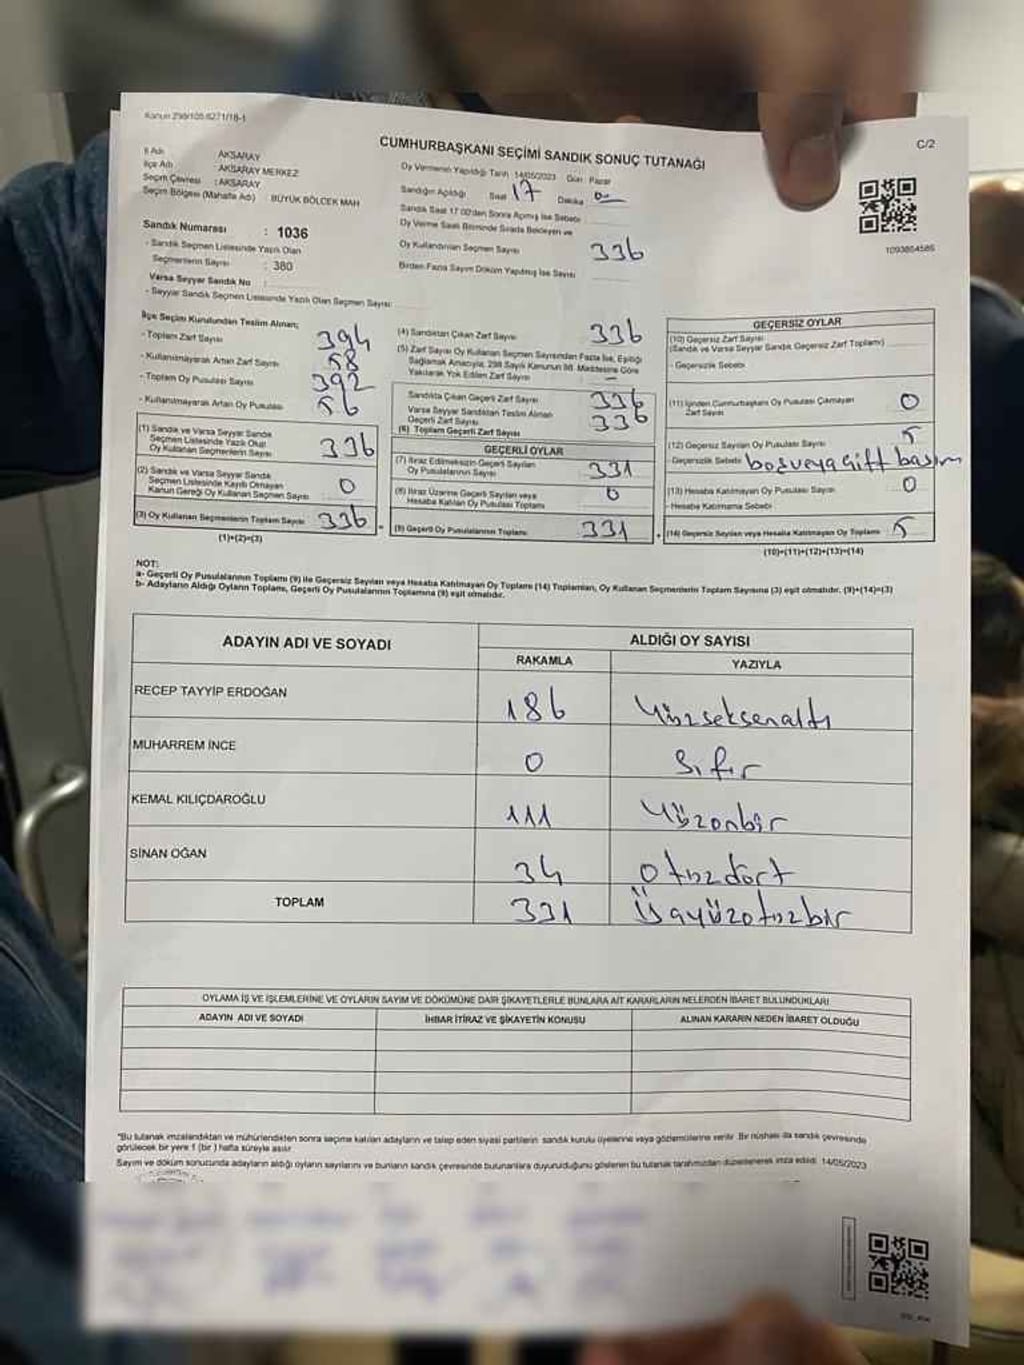 Kanun 298/105 6271/18-1
C/2
CUMHURBAŞKANI SEÇİMİ SANDIK SONUÇ TUTANAĞI
İl Adı : AKSARAY
İlçe Adı : AKSARAY MERKEZ
Seçim Çevresi : AKSARAY
Seçim Bölgesi (Mahalle Adı) : BÜYÜK BÖLCEK MAH
Sandık Numarası : 1036
- Sandık Seçmen Listesinde Yazılı Olan
Seçmenlerin Sayısı : 380
Varsa Seyyar Sandık No
- Seyyar Sandık Seçmen Listesinde Yazılı Olan Seçmen Sayısı:
Oy Vermenin Yapıldığı Tarih 14/05/2023 Gün : Pazar
Sandığın Açıldığı Saat 17 Dakika 00
Sandık Saat 17.00'den Sonra Açılmış İse Sebebi
Oy Verme Saati Bitiminde Sırada Bekleyen ve
Oy Kullandırılan Seçmen Sayısı 336
Birden Fazla Sayım Döküm Yapılmış İse Sayısı
1093854586
İlçe Seçim Kurulundan Teslim Alınan;
- Toplam Zarf Sayısı 394
- Kullanılmayarak Artan Zarf Sayısı 58
- Toplam Oy Pusulası Sayısı 392
- Kullanılmayarak Artan Oy Pusulası 56
(1) Sandık ve Varsa Seyyar Sandık
Seçmen Listesinde Yazılı Olup
Oy Kullanan Seçmenlerin Sayısı 336
(2) Sandık ve Varsa Seyyar Sandık
Seçmen Listesinde Kayıtlı Olmayan
Kanun Gereği Oy Kullanan Seçmen Sayısı 0
(3) Oy Kullanan Seçmenlerin Toplam Sayısı 336
(1)+(2)=(3)
(4) Sandıktan Çıkan Zarf Sayısı 336
(5) Zarf Sayısı Oy Kullanan Seçmen Sayısından Fazla İse, Eşitliği
Sağlamak Amacıyla, 298 Sayılı Kanunun 98. Maddesine Göre
Yakılarak Yok Edilen Zarf Sayısı —
Sandıkta Çıkan Geçerli Zarf Sayısı 336
Varsa Seyyar Sandıktan Teslim Alınan
Geçerli Zarf Sayısı 336
(6) Toplam Geçerli Zarf Sayısı
GEÇERLİ OYLAR
(7) İtiraz Edilmeksizin Geçerli Sayılan
Oy Pusulalarının Sayısı 331
(8) İtiraz Üzerine Geçerli Sayılan veya
Hesaba Katılan Oy Pusulası Toplamı 0
(9) Geçerli Oy Pusulalarının Toplamı 331
GEÇERSİZ OYLAR
(10) Geçersiz Zarf Sayısı
(Sandık ve Varsa Seyyar Sandık Geçersiz Zarf Toplamı)
- Geçersizlik Sebebi
(11) İçinden Cumhurbaşkanı Oy Pusulası Çıkmayan
Zarf Sayısı 0
(12) Geçersiz Sayılan Oy Pusulası Sayısı 5
- Geçersizlik Sebebi boş veya çift basım
(13) Hesaba Katılmayan Oy Pusulası Sayısı 0
- Hesaba Katılmama Sebebi
(14) Geçersiz Sayılan veya Hesaba Katılmayan Oy Toplamı 5
(10)+(11)+(12)+(13)=(14)
NOT:
a- Geçerli Oy Pusulalarının Toplamı (9) ile Geçersiz Sayılan veya Hesaba Katılmayan Oy Toplamı (14) Toplamları, Oy Kullanan Seçmenlerin Toplam Sayısına (3) eşit olmalıdır. (9)+(14)=(3)
b- Adayların Aldığı Oyların Toplamı, Geçerli Oy Pusulalarının Toplamına (9) eşit olmalıdır.
ADAYIN ADI VE SOYADI ALDIĞI OY SAYISI
RAKAMLA YAZIYLA
RECEP TAYYİP ERDOĞAN 186 Yüzseksenaltı
MUHARREM İNCE 0 Sıfır
KEMAL KILIÇDAROĞLU 111 Yüzonbir
SİNAN OĞAN 34 Otuzdört
TOPLAM 331 Üçyüzotuzbir
OYLAMA İŞ VE İŞLEMLERİNE VE OYLARIN SAYIM VE DÖKÜMÜNE DAİR ŞİKAYETLERLE BUNLARA AİT KARARLARIN NELERDEN İBARET BULUNDUKLARI
ADAYIN ADI VE SOYADI İHBAR İTİRAZ VE ŞİKAYETİN KONUSU ALINAN KARARIN NEDEN İBARET OLDUĞU
*Bu tutanak imzalandıktan ve mühürlendikten sonra seçime katılan adayların ve talep eden siyasi partilerin sandık kurulu üyelerine veya gözlemcilerine verilir. Bir nüshası da sandık çevresinde
görülecek bir yere 1 (bir) hafta süreyle asılır.
Sayım ve döküm sonucunda adayların aldığı oyların sayılarını ve bunların sandık çevresinde bulunanlara duyurulduğunu gösteren bu tutanak tarafımızdan düzenlenerek imza edildi. 14/05/2023